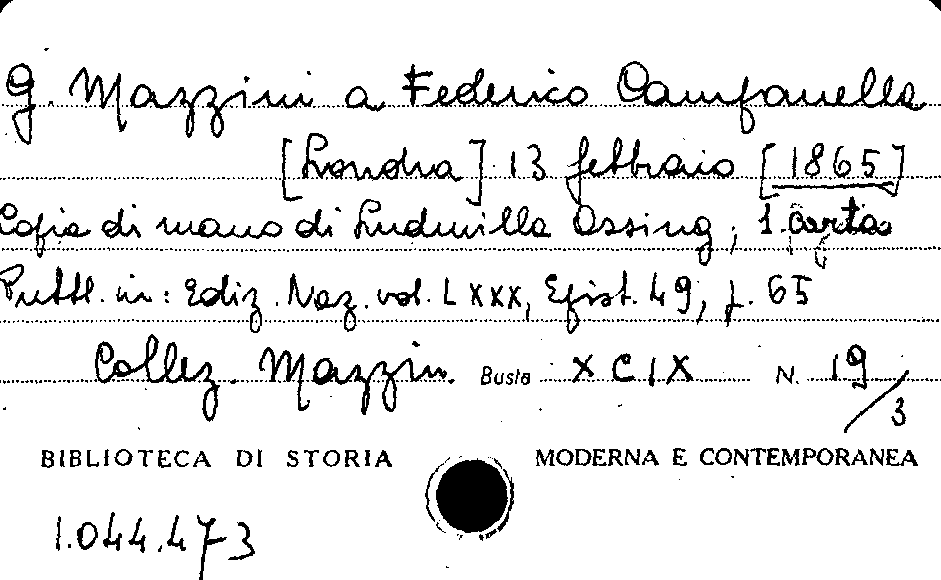 G. Mazzini a Federico Campanella
[Londra] 13 febbraio [1865]
Copia di mano di Ludmilla Assing, 1 carta
Pubbl. in: Ediz. Naz. vol. LXXX, Epist. 49, p. 65
Collez. Mazzin. Busta XCIX N. 19/3
BIBLIOTECA DI STORIA MODERNA E CONTEMPORANEA
1.044.473